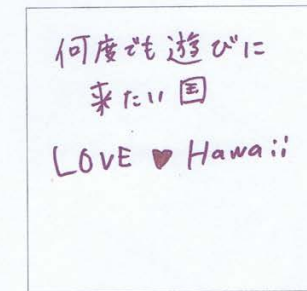 何度でも遊びに
来たい国
LOVE ♥ Hawaii